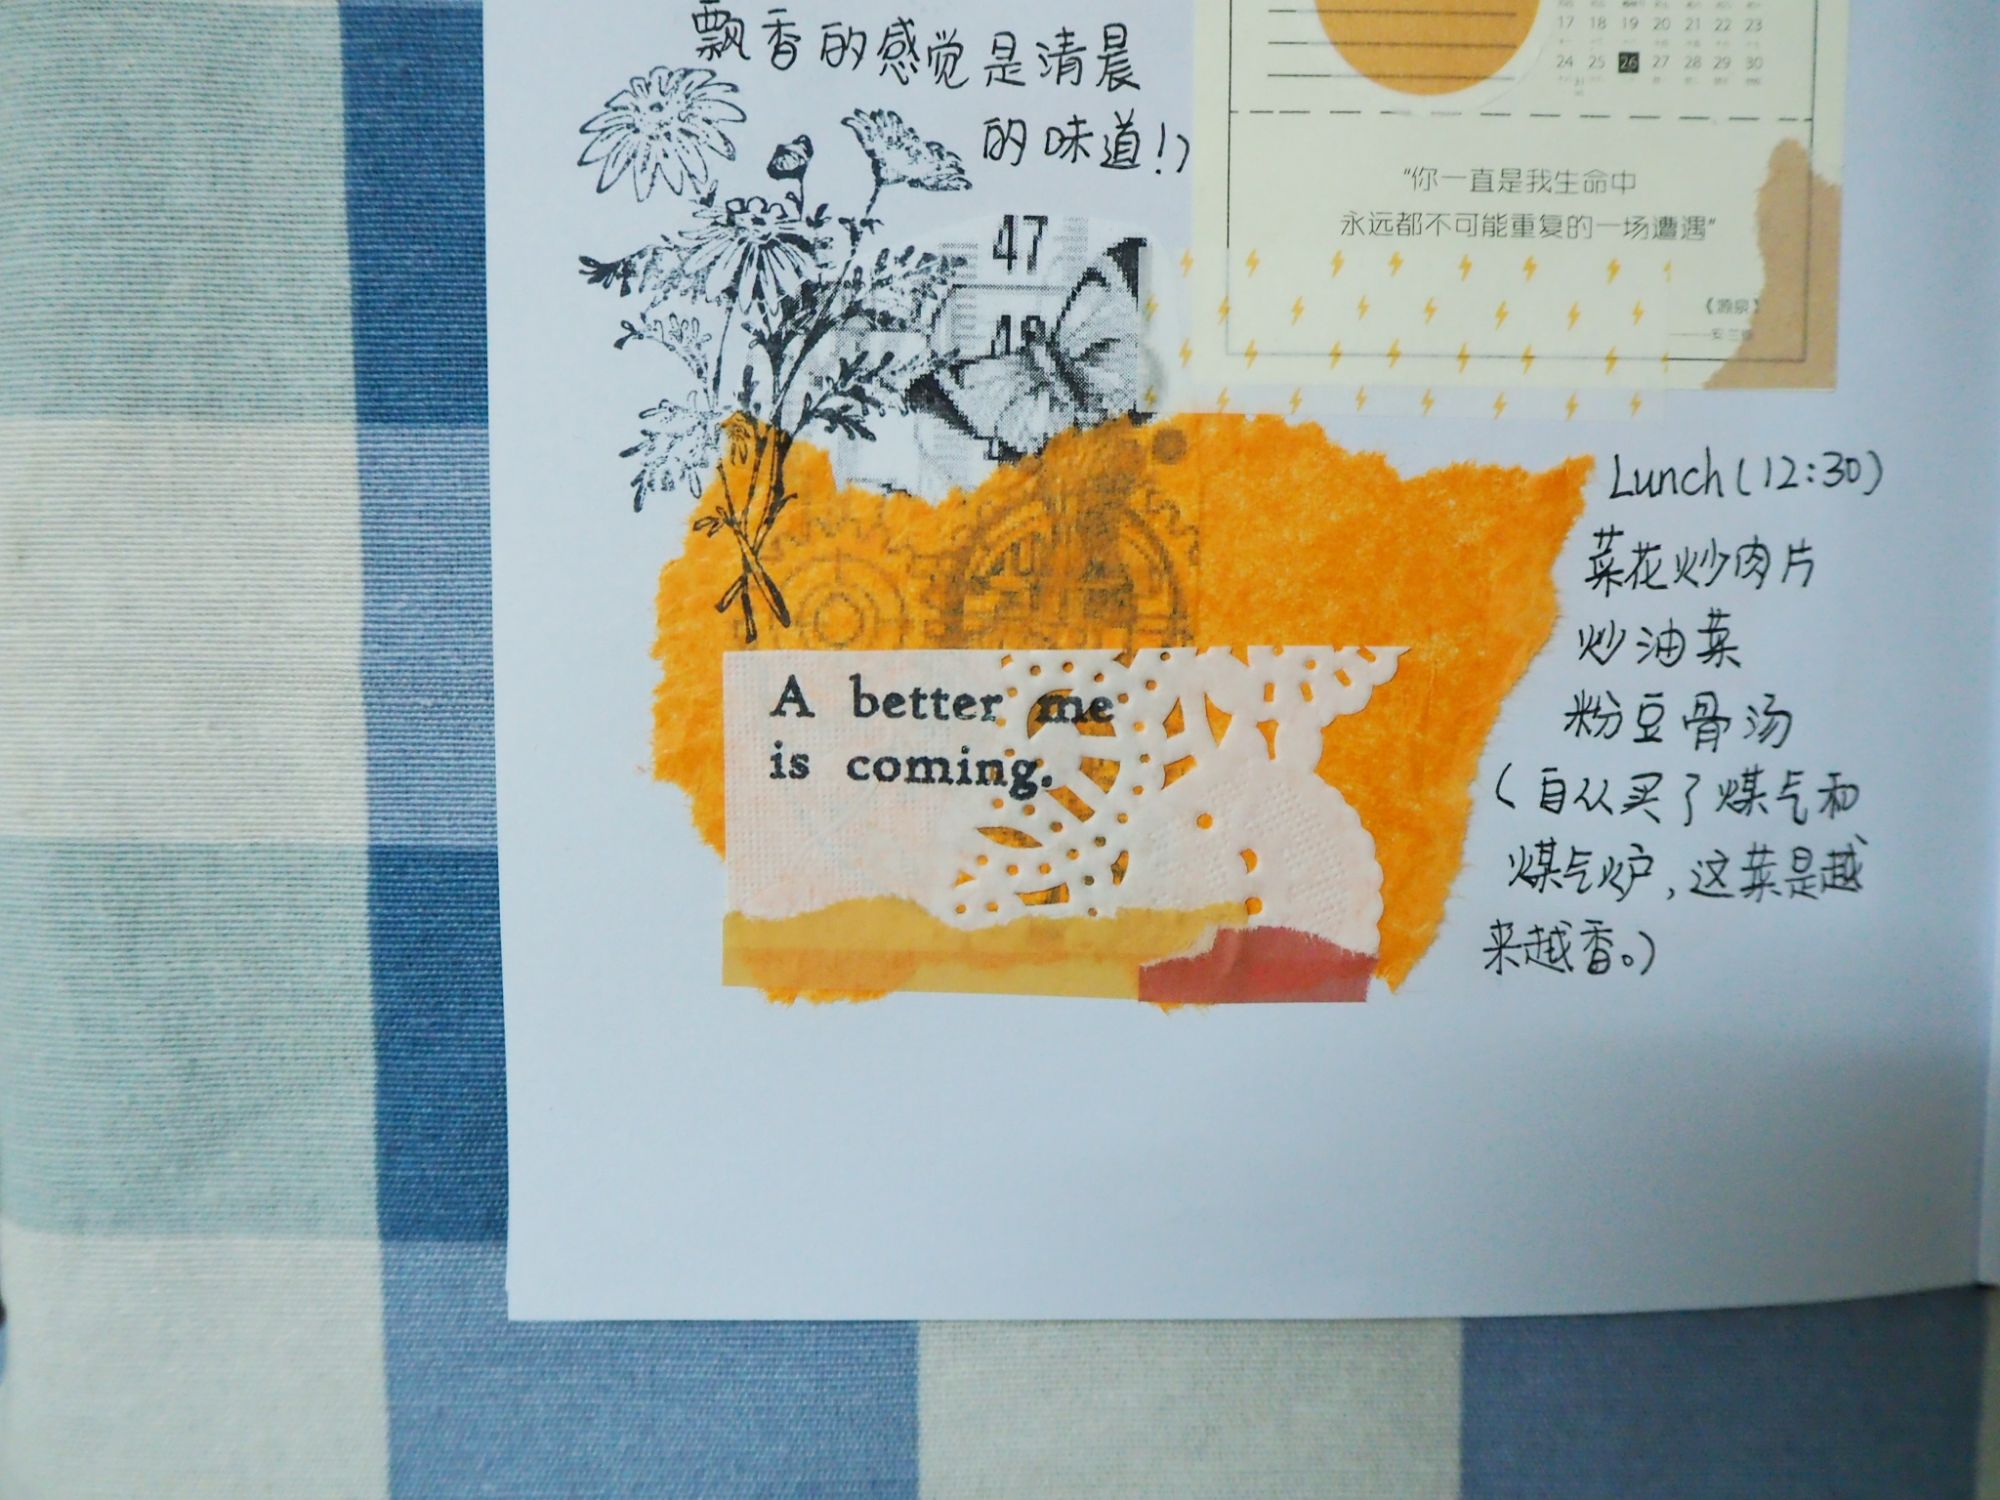 飘香的感觉是清晨
的味道！）
17 18 19 20 21 22 23
24 25 26 27 28 29 30
31
“你一直是我生命中
永远都不可能重复的一场遭遇”
《源泉》
47
48
Lunch(12:30)
菜花炒肉片
炒油菜
粉豆骨汤
（自从买了煤气和
煤气炉，这菜是越
来越香。）
A better me
is coming.